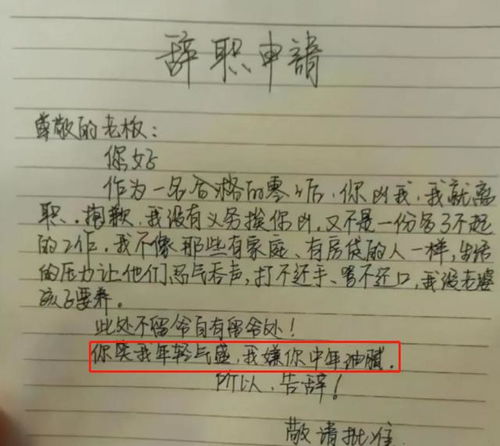 辞职申請
尊敬的老板：
你好
作为一名合格的零0后，你凶我，我就离
职。抱歉，我没有义务挨你凶，又不是一份多了不起
的工作，我不像那些有家庭、有房贷的人一样，生活
的压力让他们忍气吞声，打不还手、骂不还口，我没老婆
孩子要养。
此处不留爷自有留爷处！
你笑我年轻气盛，我嫌你中年油腻。
所以，告辞！
敬请批准